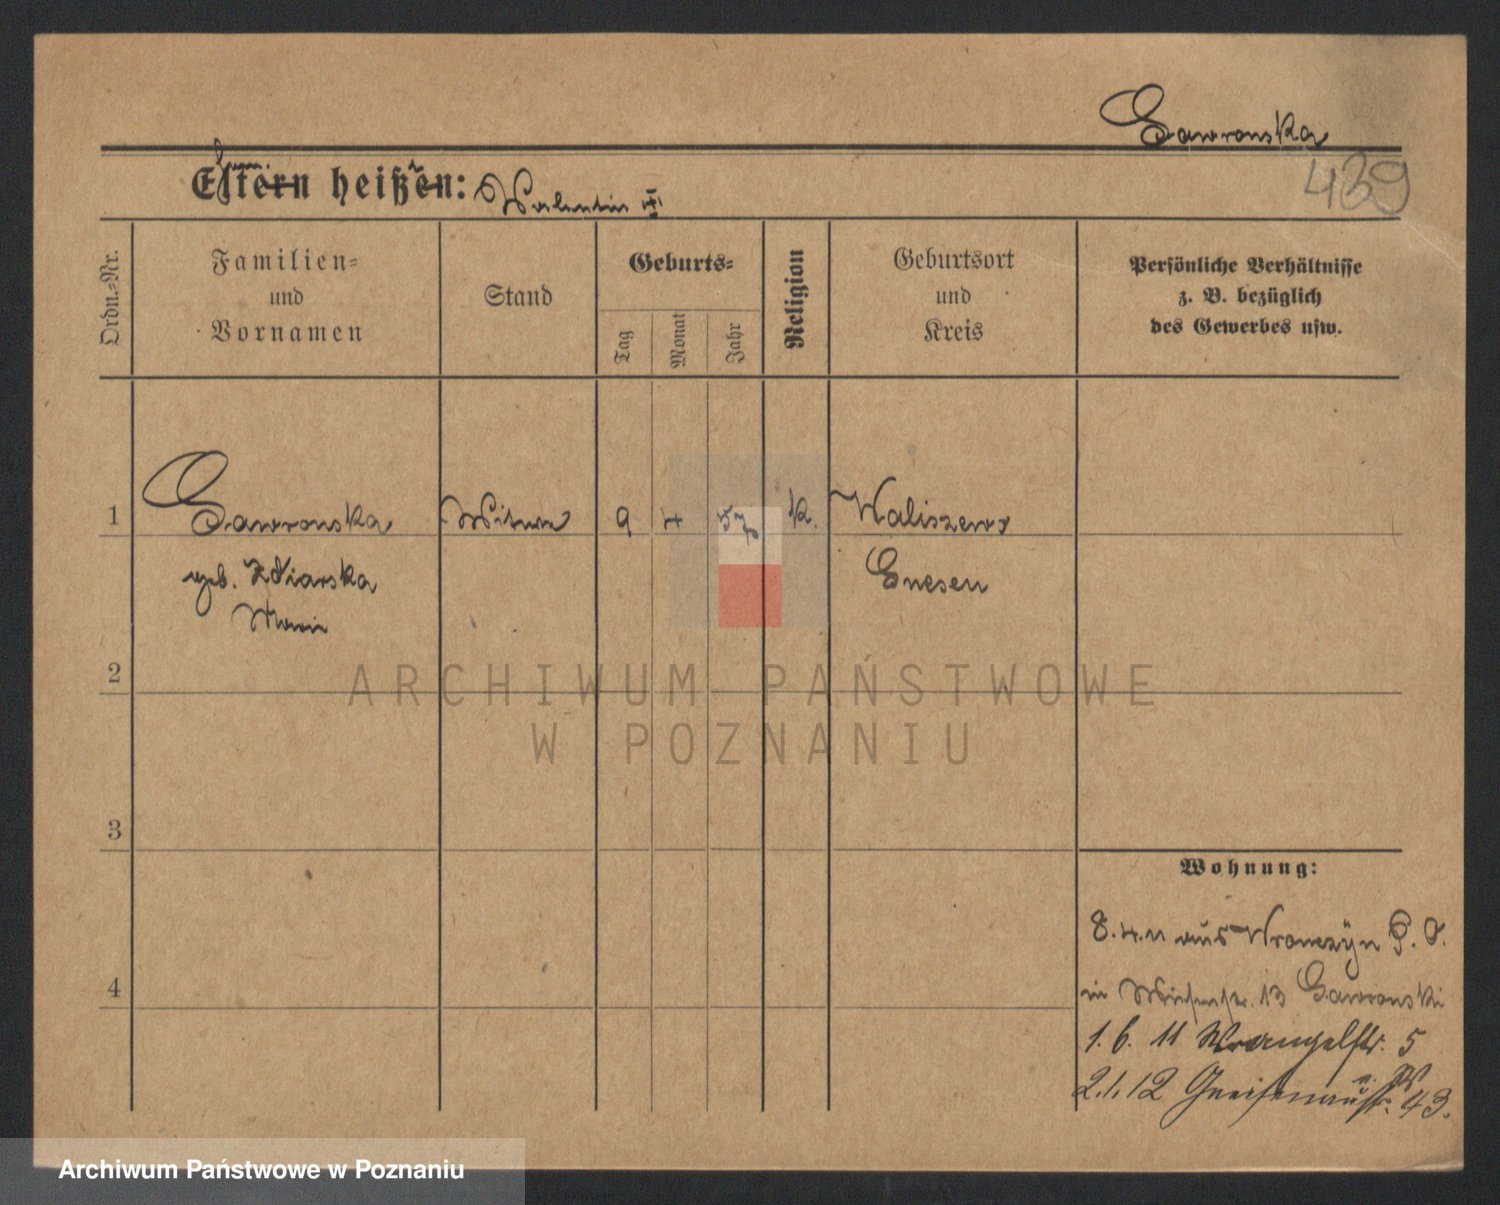 Gawronska
439
Eltern heißen: Valentin II
Ordn.=Nr.
Familien=
und
Vornamen
Stand
Geburts=
Tag
Monat
Jahr
Religion
Geburtsort
und
Kreis
Persönliche Verhältnisse
z. B. bezüglich
des Gewerbes usw.
1 Gawronska Witwe 9 4 57 k. Waliszewo
geb. Zdiarska Gnesen
Marie
2
3
4
ARCHIWUM PAŃSTWOWE
W POZNANIU
Wohnung:
8.4.11 aus Wronczÿn P. O.
in Wiesenstr. 13 Gawronski
1.6.11 Wrangelstr. 5
2.1.12 Gneisenaustr. 43.
Archiwum Państwowe w Poznaniu